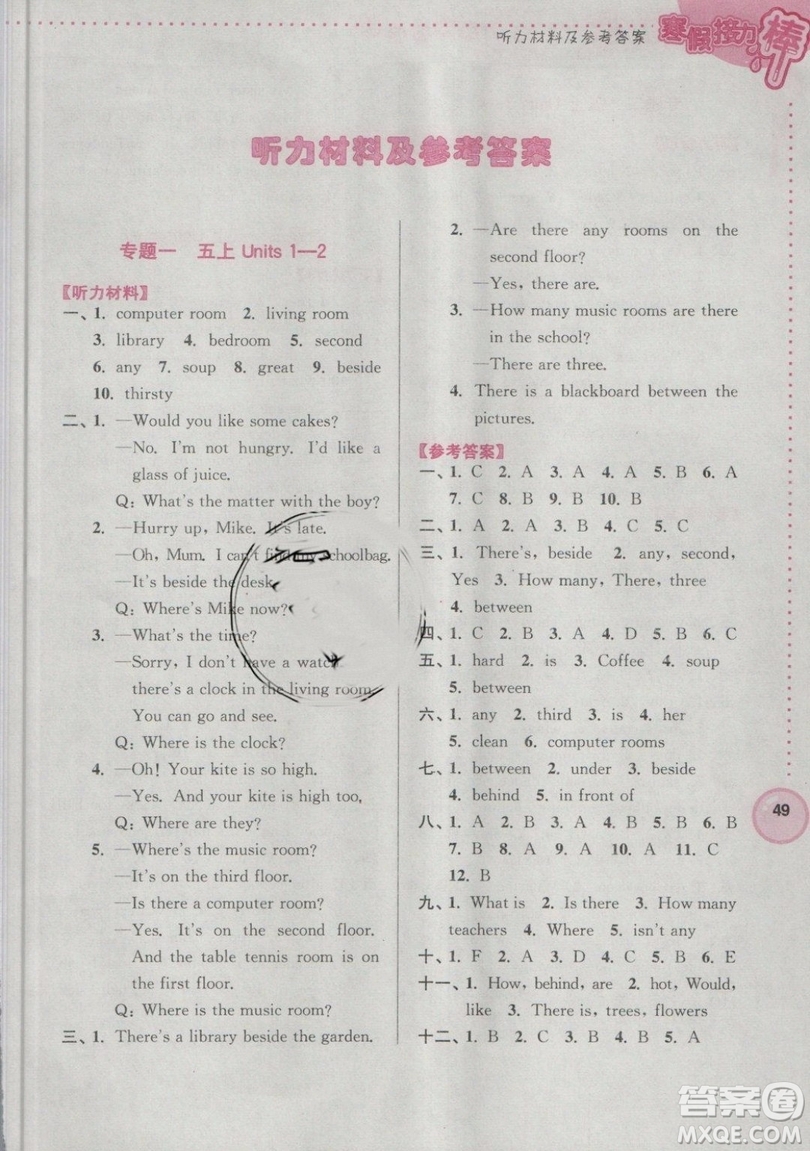 听力材料及参考答案
寒假接力棒
听力材料及参考答案
专题一 五上 Units 1—2
【听力材料】
一、1. computer room 2. living room
3. library 4. bedroom 5. second
6. any 7. soup 8. great 9. beside
10. thirsty
二、1. —Would you like some cakes?
—No. I'm not hungry. I'd like a
glass of juice.
Q: What's the matter with the boy?
2. —Hurry up, Mike. It's late.
—Oh, Mum. I can't find my schoolbag.
—It's beside the desk.
Q: Where's Mike now?
3. —What's the time?
—Sorry, I don't have a watch.
there's a clock in the living room.
You can go and see.
Q: Where is the clock?
4. —Oh! Your kite is so high.
—Yes. And your kite is high too.
Q: Where are they?
5. —Where's the music room?
—It's on the third floor.
—Is there a computer room?
—Yes. It's on the second floor.
And the table tennis room is on
the first floor.
Q: Where is the music room?
三、1. There's a library beside the garden.
2. —Are there any rooms on the
second floor?
—Yes, there are.
3. —How many music rooms are there
in the school?
—There are three.
4. There is a blackboard between the
pictures.
【参考答案】
一、1. C 2. A 3. A 4. A 5. B 6. A
7. C 8. B 9. B 10. B
二、1. A 2. A 3. B 4. C 5. C
三、1. There's, beside 2. any, second,
Yes 3. How many, There, three
4. between
四、1. C 2. B 3. A 4. D 5. B 6. C
五、1. hard 2. is 3. Coffee 4. soup
5. between
六、1. any 2. third 3. is 4. her
5. clean 6. computer rooms
七、1. between 2. under 3. beside
4. behind 5. in front of
八、1. A 2. B 3. C 4. A 5. B 6. B
7. B 8. A 9. B 10. A 11. C
12. B
九、1. What is 2. Is there 3. How many
teachers 4. Where 5. isn't any
十、1. F 2. A 3. D 4. C 5. B 6. E
十一、1. How, behind, are 2. hot, Would,
like 3. There is, trees, flowers
十二、1. A 2. B 3. A 4. B 5. B
49
答案圈
MXQE.COM